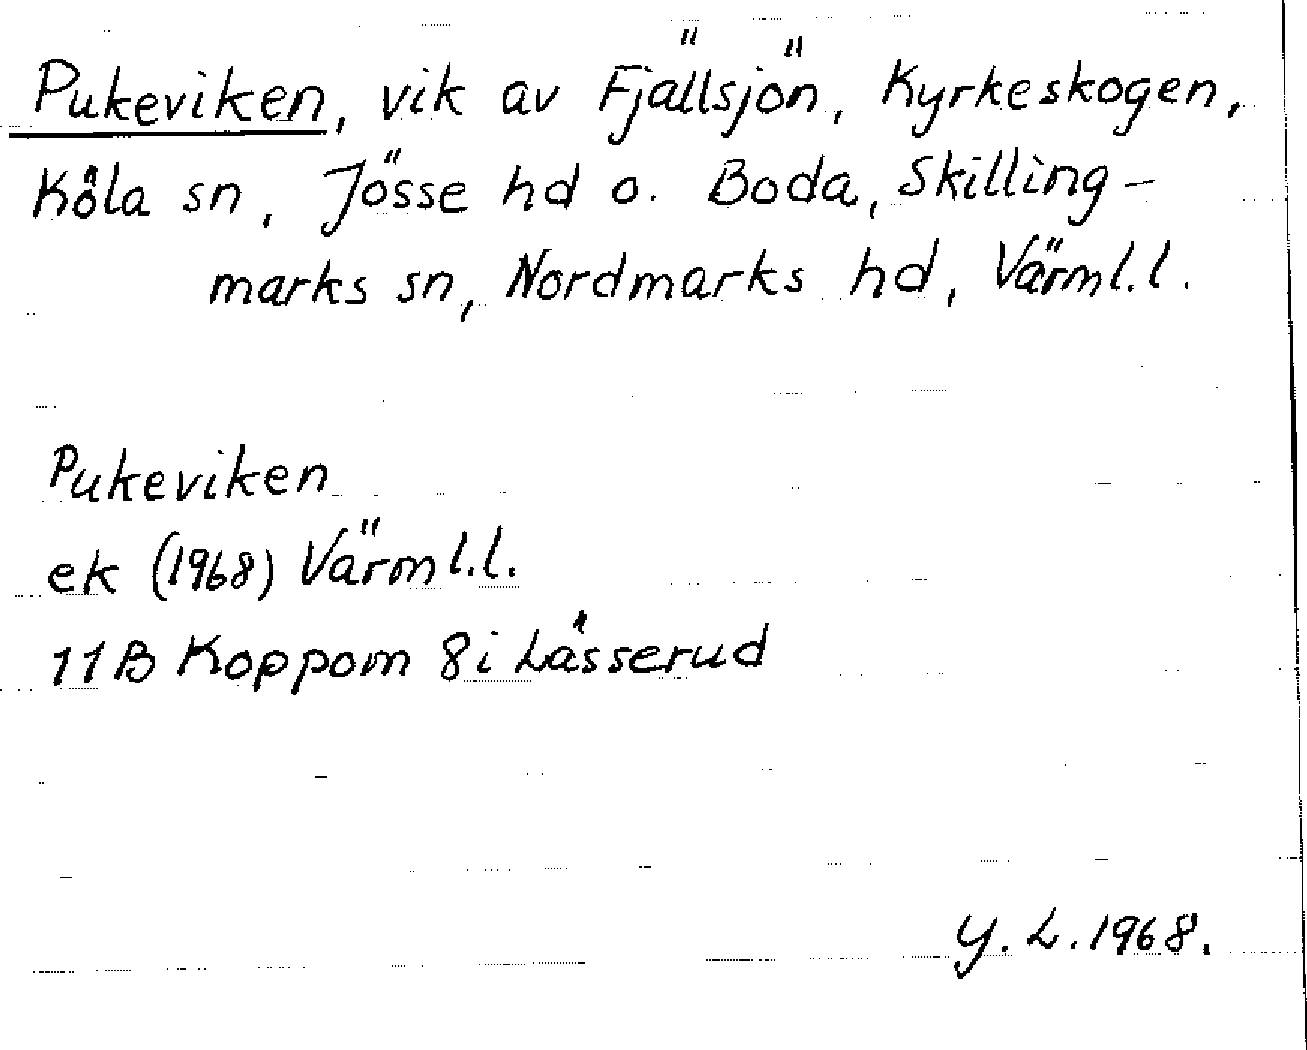 Pukeviken, vik av Fjällsjön, Kyrkeskogen,
Köla sn, Jösse hd o. Boda, Skilling-
marks sn, Nordmarks hd, Värml.l.
Pukeviken
ek (1968) Värml.l.
11B Koppom 8i Lässerud
Y. L. 1968.